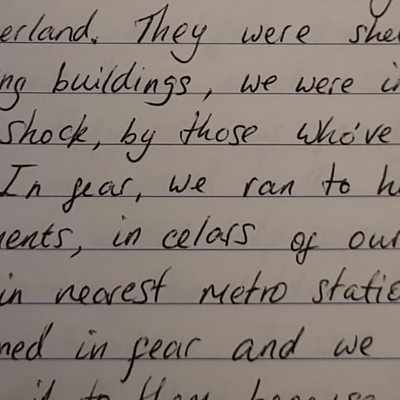 erland. They were she
ng buildings, we were i
shock, by those who've
In fear, we ran to h
ents, in celars of our
in nearest metro static
ned in fear and we
it to them because